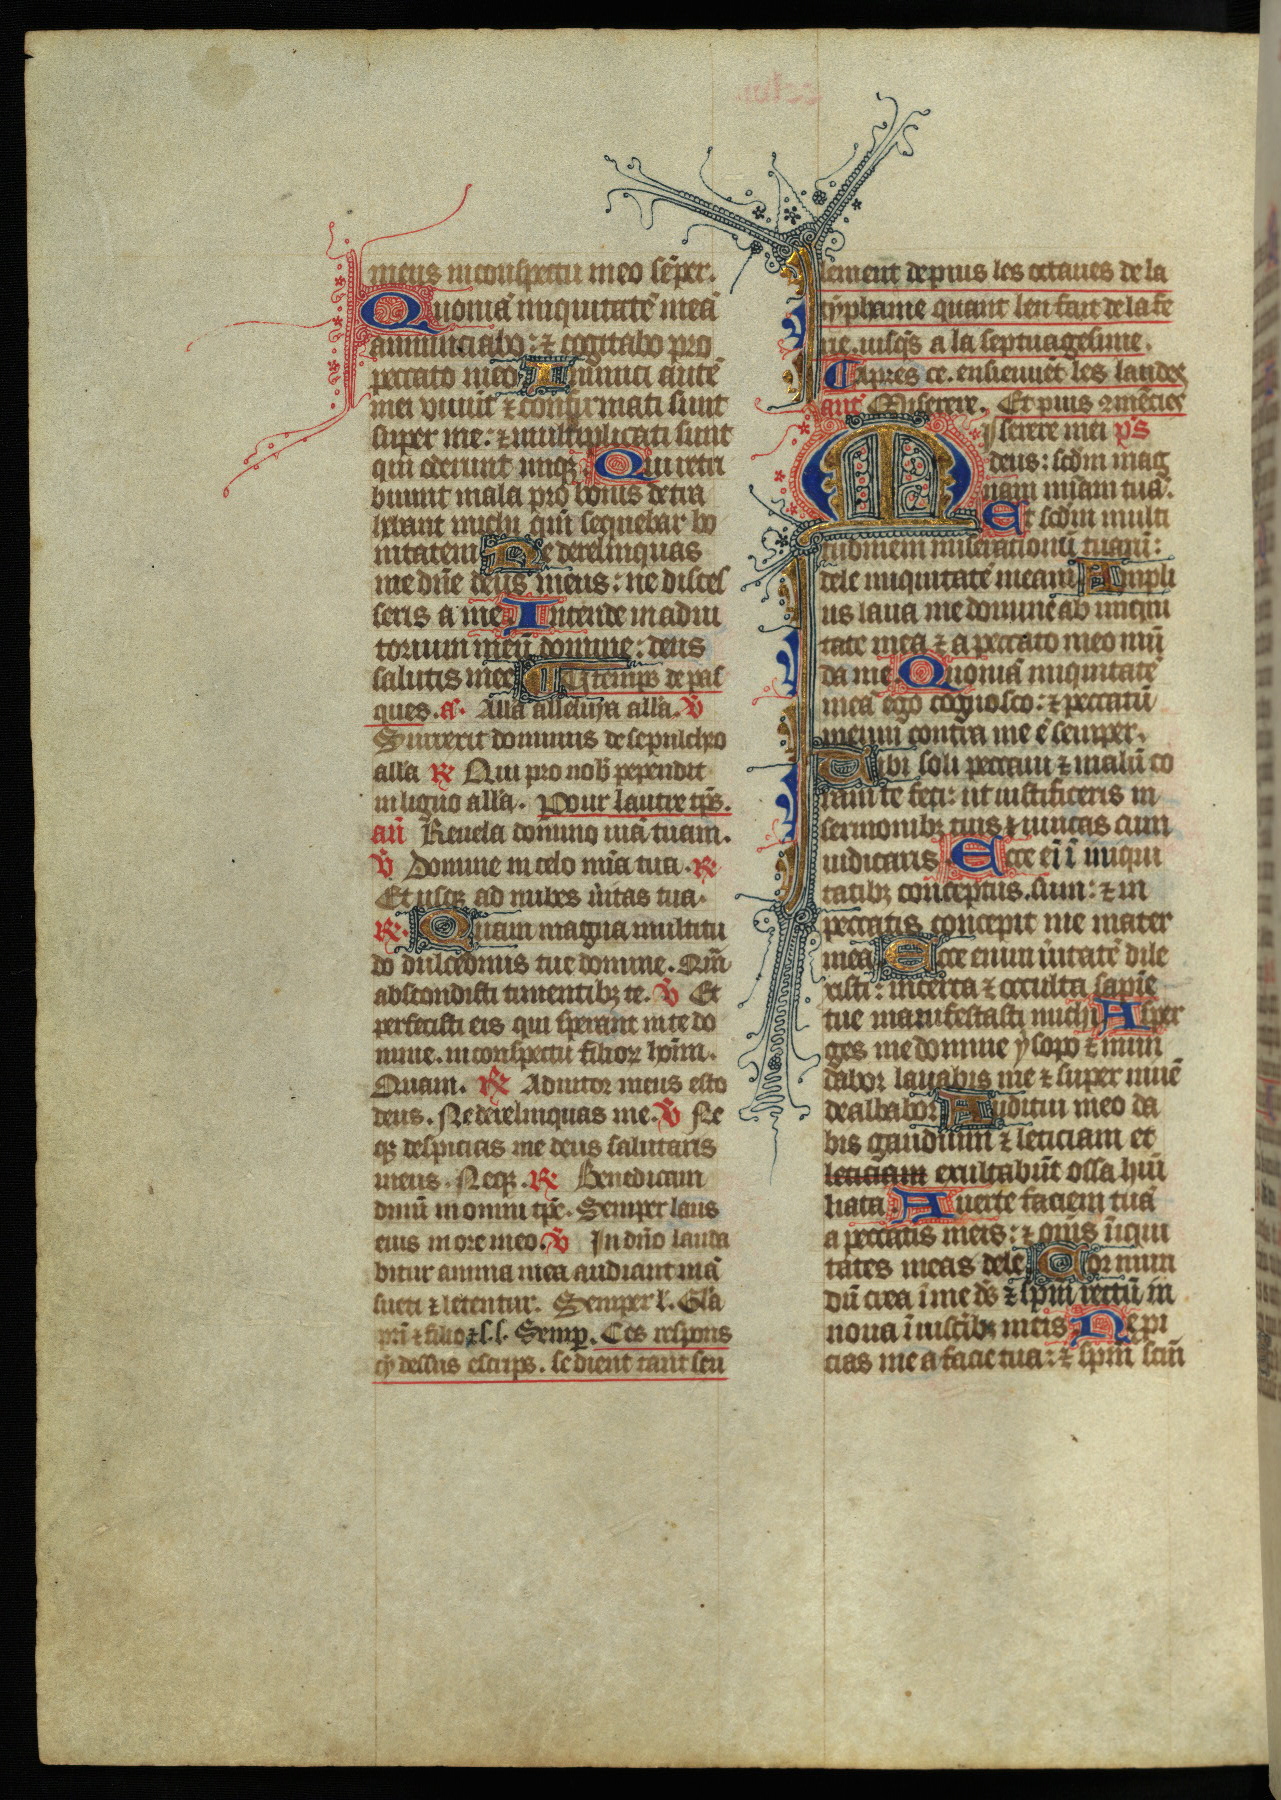 meus in conspectu meo sēper.
Quoniā iniquitatē meā
annunciabo: ⁊ cogitabo pro
peccato meo Inimici autē
mei viuūt ⁊ confirmati sunt
super me: ⁊ multiplicati sunt
qui oderunt iniqꝫ Qui retri
buunt mala pro bonis detra
hebant michi qm̄ sequebar bo
nitatem Ne derelinquas
me dn̄e deus meus: ne disces
seris a me Intende in adiu
torium meū domine: deus
salutis mee
temps de pas
ques. a. All'a alleluya all'a. v̄
Surrexit dominus de sepulchro
all'a ℟ Qui pro nob̄ pependit
in ligno all'a. Pour lautre tp̄s.
an̄ Reuela domino uiā tuam.
v̄ Domine in celo mīa tua. ℟
Et usqꝫ ad nubes ūitas tua.
℟. Quam magna multitu
do dulcedinis tue domine. Qm̄
abscondisti timentibꝫ te. v̄ Et
perfecisti eis qui sperant in te do
mine. in conspectu filioꝝ hoīm.
Quam. ℟ Adiutor meus esto
deus. Ne derelinquas me. v̄ Ne
qꝫ despicias me deus salutaris
meus. Neqꝫ. ℟ Benedicam
dnm̄ in omni tp̄e. Semper laus
eius in ore meo. v̄ In dn̄o lauda
bitur anima mea audiant mā
sueti ⁊ letentur. Semper l. Gl'a
pr̄i ⁊ filio ⁊ s. s. Semp̱. Ces respons
cy dessus escrips. se dient tant seu
lement depuis les octaues de la
typhanie quant len fait de la fe
rie. iusqs a la septuagesime.
Capres ce. ensieuuēt les laudes
ant̄ Miserere. Et puis ɔmēcies
Miserere mei ps̄
deus: scdm mag
nam mīam tuā.
Et scdm multi
tudinem miserationū tuarū:
dele iniquitatē meam Ampli
us laua me domine ab iniqui
tate mea ⁊ a peccato meo mū
da me. Quoniā iniquitatē
meā ego cognosco: ⁊ peccatū
meum contra me ē semper.
Tibi soli peccaui ⁊ malū co
ram te feci: ut iustificeris in
sermonibꝫ tuis ⁊ uincas cum
iudicaris Ecce ei ī iniqui
tatibꝫ conceptus. sum: ⁊ in
peccatis concepit me mater
mea Ecce enim ūitatē dile
xisti: incerta ⁊ occulta sapīe
tue manifestasti michi Asper
ges me domine ysopo ⁊ mun
dabor lauabis me ⁊ super niuē
dealbabor Auditui meo da
bis gaudium ⁊ leticiam et
leticiam exultabūt ossa hūi
liata Auerte faciem tuā
a peccatis meis: ⁊ om̄s īiqui
tates meas dele Cor mun
dū crea ī me ds̄ ⁊ spm̄ rectū in
noua ī uiscibꝫ meis Ne pi
cias me a facie tua: ⁊ spm̄ scm̄